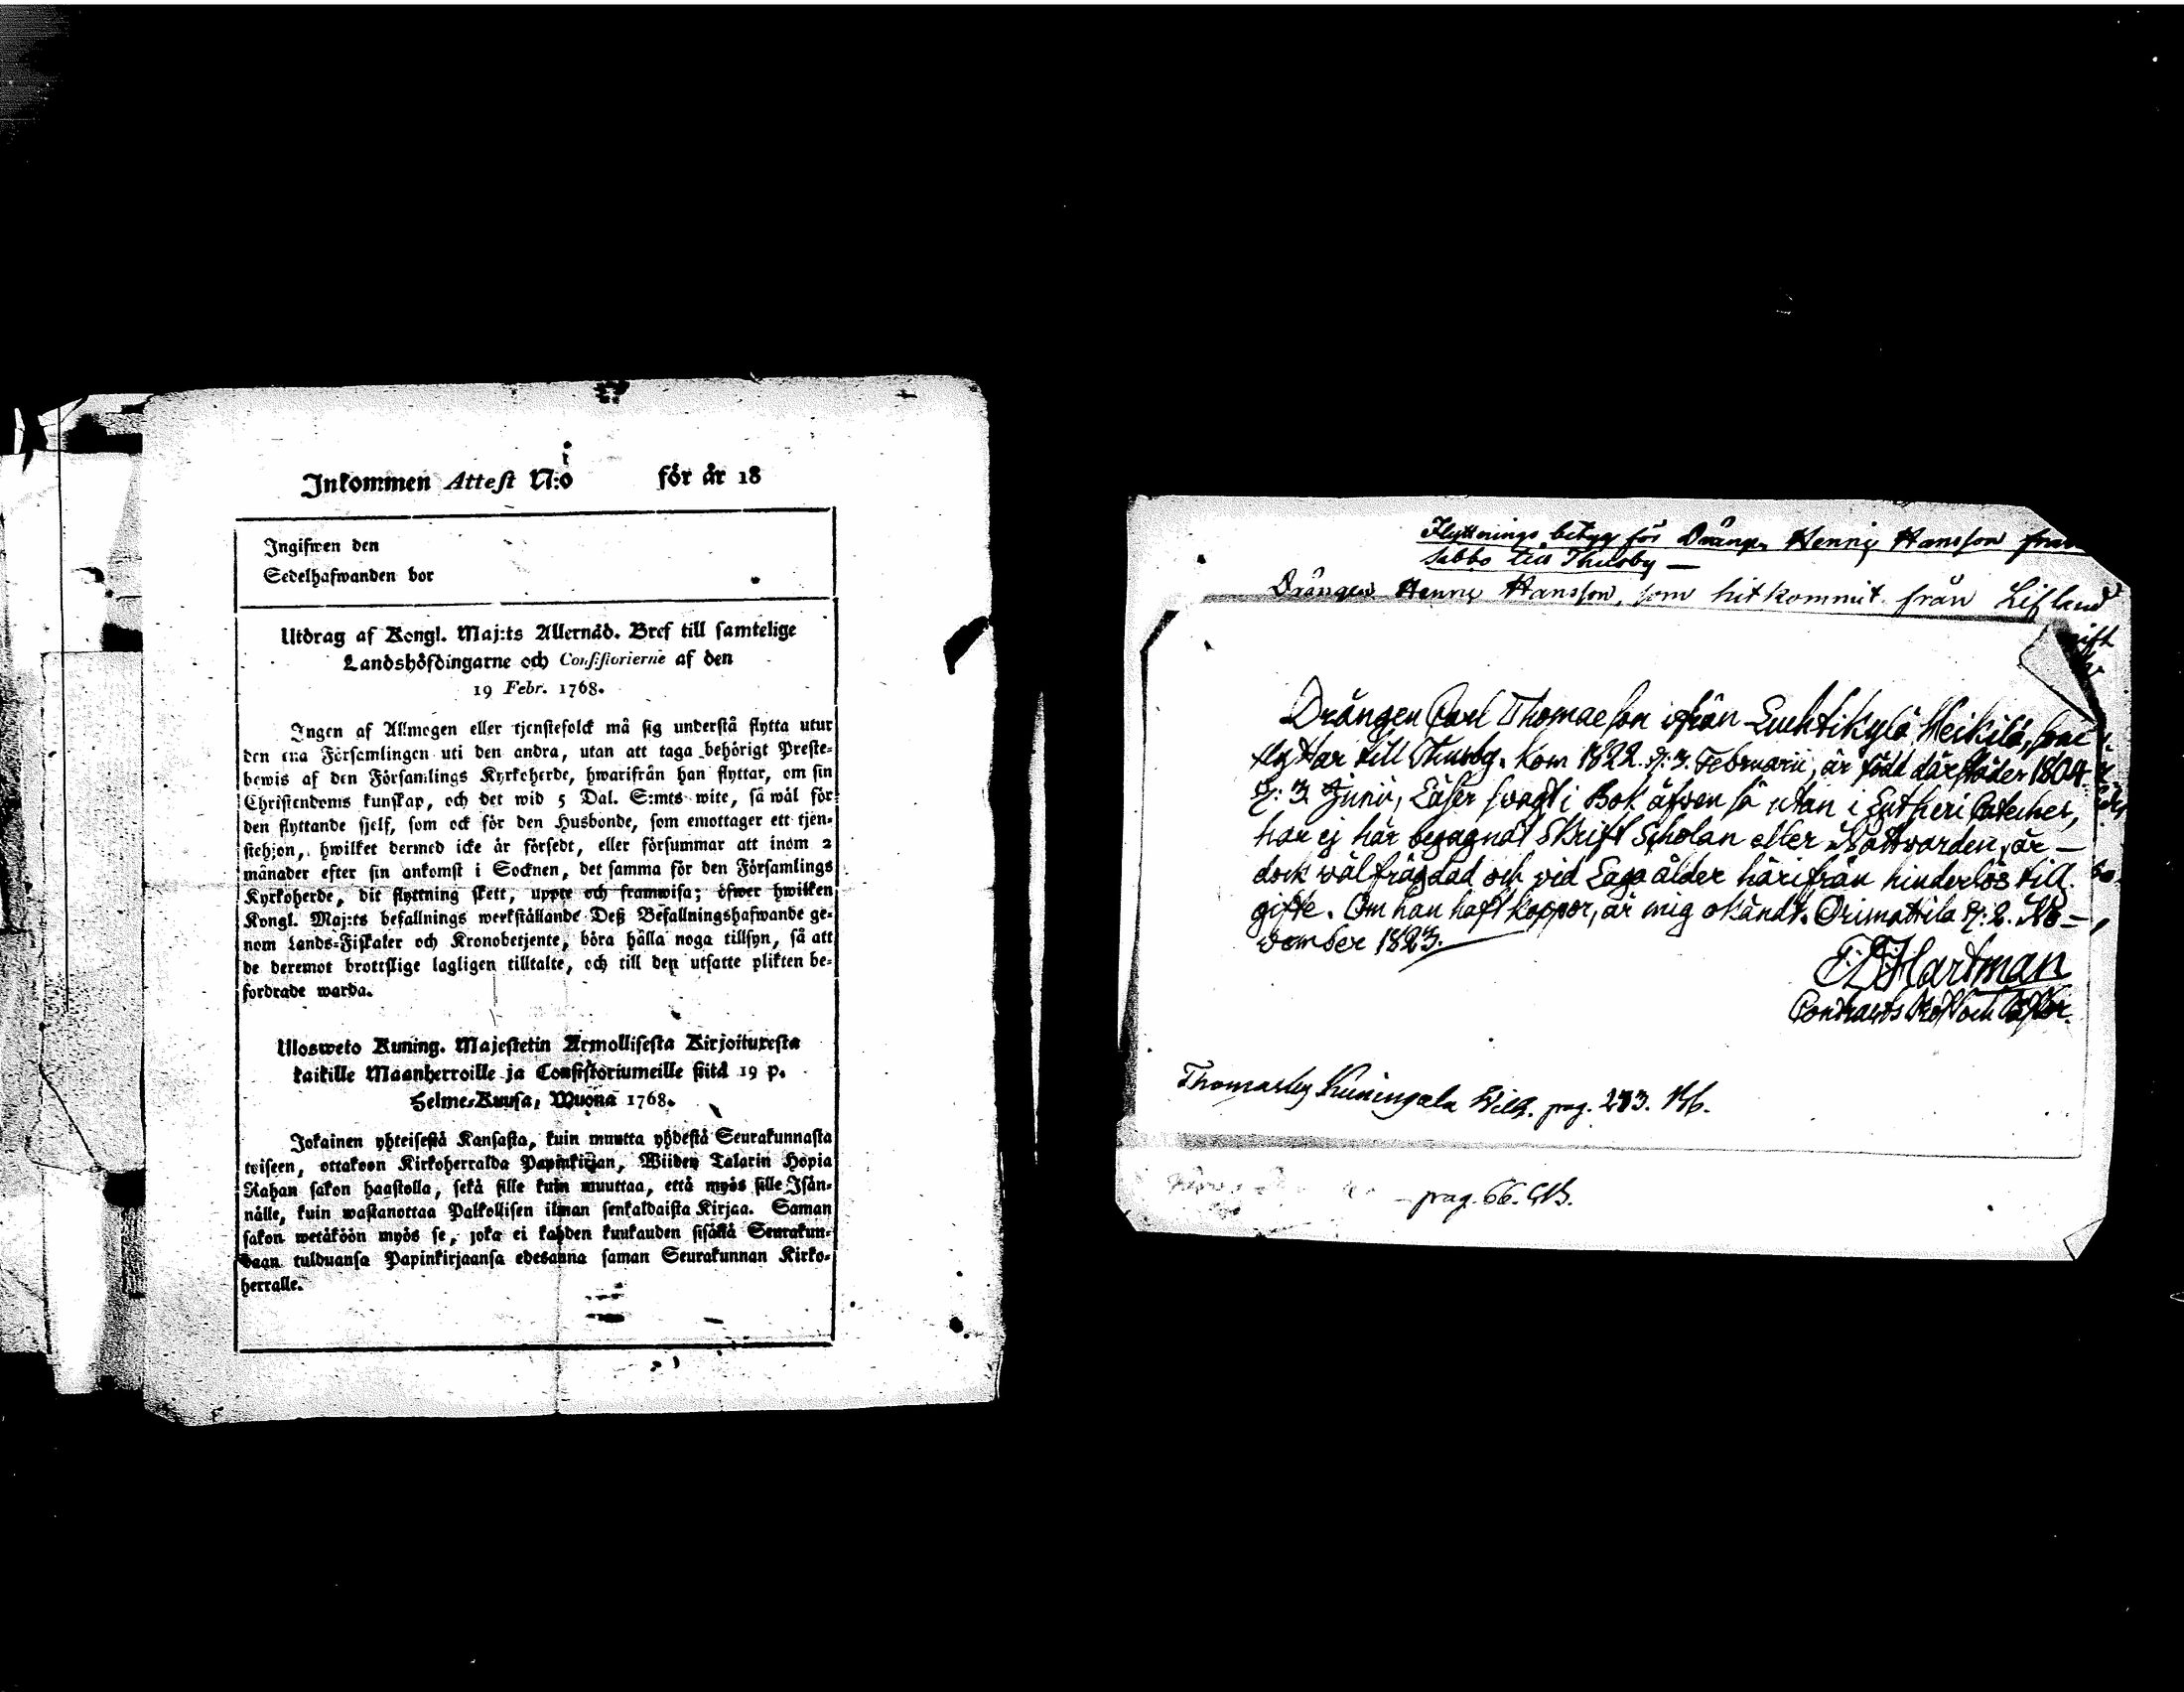 Inkommen Attest N:o för år 18
Ingifwen den
Sedelhafwanden bor
Utdrag af Kongl. Maj:ts Allernåd. Bref till samtelige
Landshöfdingarne och Consistorierne af den
19 Febr. 1768.
Ingen af Allmogen eller tjenstefolck må sig understå flytta utur
den ena Församlingen uti den andra, utan att taga behörigt Preste-
bewis af den Församlings Kyrkoherde, hwarifrån han flyttar, om sin
Christendoms kunskap, och det wid 5 Dal. S:mts wite, så wäl för
den flyttande sjelf, som ock för den Husbonde, som emottager ett tjen-
stehjon, hwilket dermed icke är försedt, eller försummar att inom 2
månader efter sin ankomst i Socknen, det samma för den Församlings
Kyrkoherde, dit flyttning skett, uppte och framwisa; öfwer hwilken
Kongl. Maj:ts befallnings werkställande Deß Befallningshafwande ge-
nom Lands-Fiskaler och Kronobetjente, böra hålla noga tillsyn, så att
de deremot brottslige lagligen tilltalte, och till den utsatte plikten be-
fordrade warda.
Ulosweto Kuning. Majestetin Armollisesta Kirjoituxesta
kaikille Maanherroille ja Consistoriumeille siitä 19 p.
Helme-Kuusa, Wuona 1768.
Jokainen yhteisestä Kansasta, kuin muutta yhdestä Seurakunnasta
toiseen, ottakoon Kirkoherralda Papinkirjan, Wiiden Talarin Hopia
Rahan sakon haastolla, sekä sille kuin muuttaa, että myös sille Isän-
nälle, kuin wastanottaa Palkollisen ilman senkaldaista Kirjaa. Saman
sakon wetäköön myös se, joka ei kahden kuukauden sisällä Seurakun-
daan tulduansa Papinkirjaansa edesanna saman Seurakunnan Kirko-
herralle.
Flyttnings betyg för Dräng. Henric Hansson från
Sabbo till Thusby —
Drängen Henric Hansson, som hitkommit från Lifland
Drängen Carl Thomaeson ifrån Luhtikylä Heikilä, som
flyttar till Thusby. Kom 1822. d: 3. Februarii, är född därstädes 1804
d: 3. Junii, Läser svagt i Bok äfven så utan i Lutheri Cateches,
har ej här begagnat Skrift Scholan eller Nattvarden, är —
dock välfrägdad och vid Laga ålder härifrån hinderlös till
gifte. Om han haft koppor, är mig okändt. Orimattila d: 2. No-
vember 1823.
Hartman
Contracts Prost och Pastor.
Thomasby Kuningala Will. pag. 273.
pag. 66.